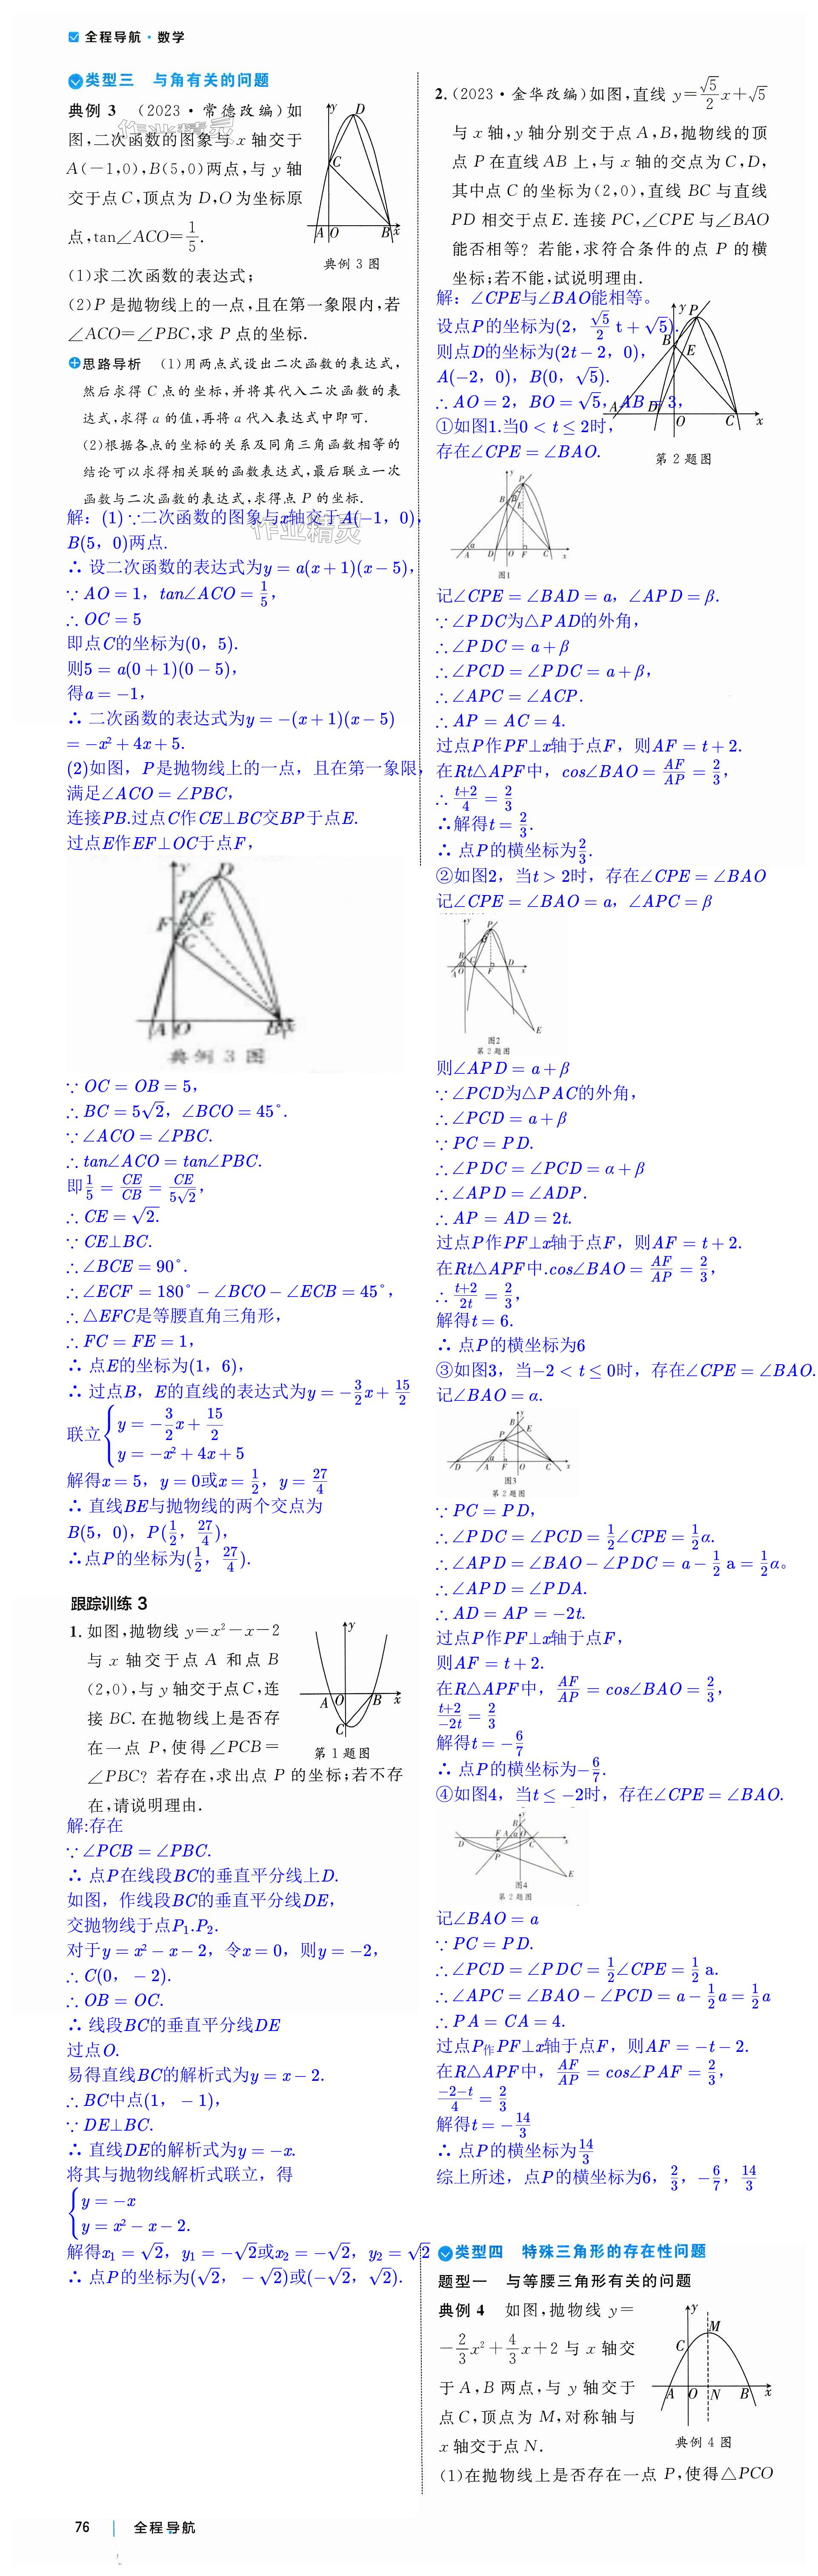 全程导航·数学
类型三 与角有关的问题
典例 3 (2023·常德改编)如
图,二次函数的图象与 x 轴交于
A(-1,0),B(5,0)两点,与 y 轴
交于点 C,顶点为 D,O 为坐标原
点,tan∠ACO=1/5.
典例 3 图
(1)求二次函数的表达式;
(2)P 是抛物线上的一点,且在第一象限内,若
∠ACO=∠PBC,求 P 点的坐标.
思路导析 (1)用两点式设出二次函数的表达式,
然后求得 C 点的坐标,并将其代入二次函数的表
达式,求得 a 的值,再将 a 代入表达式中即可.
(2)根据各点的坐标的关系及同角三角函数相等的
结论可以求得相关联的函数表达式,最后联立一次
函数与二次函数的表达式,求得点 P 的坐标.
解:(1)∵二次函数的图象与x轴交于A(-1,0),
B(5,0)两点.
∴ 设二次函数的表达式为y=a(x+1)(x-5),
∵ AO=1,tan∠ACO=1/5,
∴ OC=5
即点C的坐标为(0,5).
则5=a(0+1)(0-5),
得a=-1,
∴ 二次函数的表达式为y=-(x+1)(x-5)
=-x²+4x+5.
(2)如图,P是抛物线上的一点,且在第一象限,
满足∠ACO=∠PBC,
连接PB.过点C作CE⊥BC交BP于点E.
过点E作EF⊥OC于点F,
典例 3 图
∵ OC=OB=5,
∴ BC=5√2,∠BCO=45°.
∵ ∠ACO=∠PBC.
∴ tan∠ACO=tan∠PBC.
即1/5=CE/CB=CE/5√2,
∴ CE=√2.
∵ CE⊥BC.
∴ ∠BCE=90°.
∴ ∠ECF=180°-∠BCO-∠ECB=45°,
∴ △EFC是等腰直角三角形,
∴ FC=FE=1,
∴ 点E的坐标为(1,6),
∴ 过点B,E的直线的表达式为y=-3/2x+15/2
联立{y=-3/2x+15/2
y=-x²+4x+5
解得x=5,y=0或x=1/2,y=27/4
∴ 直线BE与抛物线的两个交点为
B(5,0),P(1/2,27/4),
∴点P的坐标为(1/2,27/4).
跟踪训练 3
1. 如图,抛物线 y=x²-x-2
与 x 轴交于点 A 和点 B
(2,0),与 y 轴交于点 C,连
接 BC. 在抛物线上是否存
在一点 P,使得∠PCB=
第 1 题图
∠PBC? 若存在,求出点 P 的坐标;若不存
在,请说明理由.
解:存在
∵ ∠PCB=∠PBC.
∴ 点P在线段BC的垂直平分线上D.
如图,作线段BC的垂直平分线DE,
交抛物线于点P₁.P₂.
对于y=x²-x-2,令x=0,则y=-2,
∴ C(0,-2).
∴ OB=OC.
∴ 线段BC的垂直平分线DE
过点O.
易得直线BC的解析式为y=x-2.
∴ BC中点(1,-1),
∵ DE⊥BC.
∴ 直线DE的解析式为y=-x.
将其与抛物线解析式联立,得
{y=-x
y=x²-x-2.
解得x₁=√2,y₁=-√2或x₂=-√2,y₂=√2
∴ 点P的坐标为(√2,-√2)或(-√2,√2).
2. (2023·金华改编)如图,直线 y=√5/2x+√5
与 x 轴,y 轴分别交于点 A,B,抛物线的顶
点 P 在直线 AB 上,与 x 轴的交点为 C,D,
其中点 C 的坐标为(2,0),直线 BC 与直线
PD 相交于点 E. 连接 PC,∠CPE 与∠BAO
能否相等? 若能,求符合条件的点 P 的横
坐标;若不能,试说明理由.
解:∠CPE与∠BAO能相等。
设点P的坐标为(2,√5/2 t+√5).
则点D的坐标为(2t-2,0),
A(-2,0),B(0,√5).
∴ AO=2,BO=√5,AB=3,
①如图1.当0<t≤2时,
存在∠CPE=∠BAO.
第 2 题图
图1
记∠CPE=∠BAD=a,∠APD=β.
∵ ∠PDC为△PAD的外角,
∴ ∠PDC=a+β
∴ ∠PCD=∠PDC=a+β,
∴ ∠APC=∠ACP.
∴ AP=AC=4.
过点P作PF⊥x轴于点F,则AF=t+2.
在Rt△APF中,cos∠BAO=AF/AP=2/3,
∴ t+2/4=2/3
∴解得t=2/3.
∴ 点P的横坐标为2/3.
②如图2,当t>2时,存在∠CPE=∠BAO
记∠CPE=∠BAO=a,∠APC=β
图2
第 2 题图
则∠APD=a+β
∵ ∠PCD为△PAC的外角,
∴ ∠PCD=a+β
∵ PC=PD.
∴ ∠PDC=∠PCD=α+β
∴ ∠APD=∠ADP.
∴ AP=AD=2t.
过点P作PF⊥x轴于点F,则AF=t+2.
在Rt△APF中.cos∠BAO=AF/AP=2/3,
∴ t+2/2t=2/3,
解得t=6.
∴ 点P的横坐标为6
③如图3,当-2<t≤0时,存在∠CPE=∠BAO.
记∠BAO=α.
图3
第 2 题图
∵ PC=PD,
∴ ∠PDC=∠PCD=1/2∠CPE=1/2α.
∴ ∠APD=∠BAO-∠PDC=a-1/2 a=1/2α。
∴ ∠APD=∠PDA.
∴ AD=AP=-2t.
过点P作PF⊥x轴于点F,
则AF=t+2.
在R△APF中,AF/AP=cos∠BAO=2/3,
t+2/-2t=2/3
解得t=-6/7
∴ 点P的横坐标为-6/7.
④如图4,当t≤-2时,存在∠CPE=∠BAO.
图4
第 2 题图
记∠BAO=a
∵ PC=PD.
∴ ∠PCD=∠PDC=1/2∠CPE=1/2 a.
∴ ∠APC=∠BAO-∠PCD=a-1/2a=1/2a
∴ PA=CA=4.
过点P作PF⊥x轴于点F,则AF=-t-2.
在R△APF中,AF/AP=cos∠PAF=2/3,
-2-t/4=2/3
解得t=-14/3
∴ 点P的横坐标为14/3
综上所述,点P的横坐标为6,2/3,-6/7,14/3
类型四 特殊三角形的存在性问题
题型一 与等腰三角形有关的问题
典例 4 如图,抛物线 y=
-2/3x²+4/3x+2 与 x 轴交
于 A,B 两点,与 y 轴交于
点 C,顶点为 M,对称轴与
x 轴交于点 N.
典例 4 图
(1)在抛物线上是否存在一点 P,使得△PCO
76 全程导航